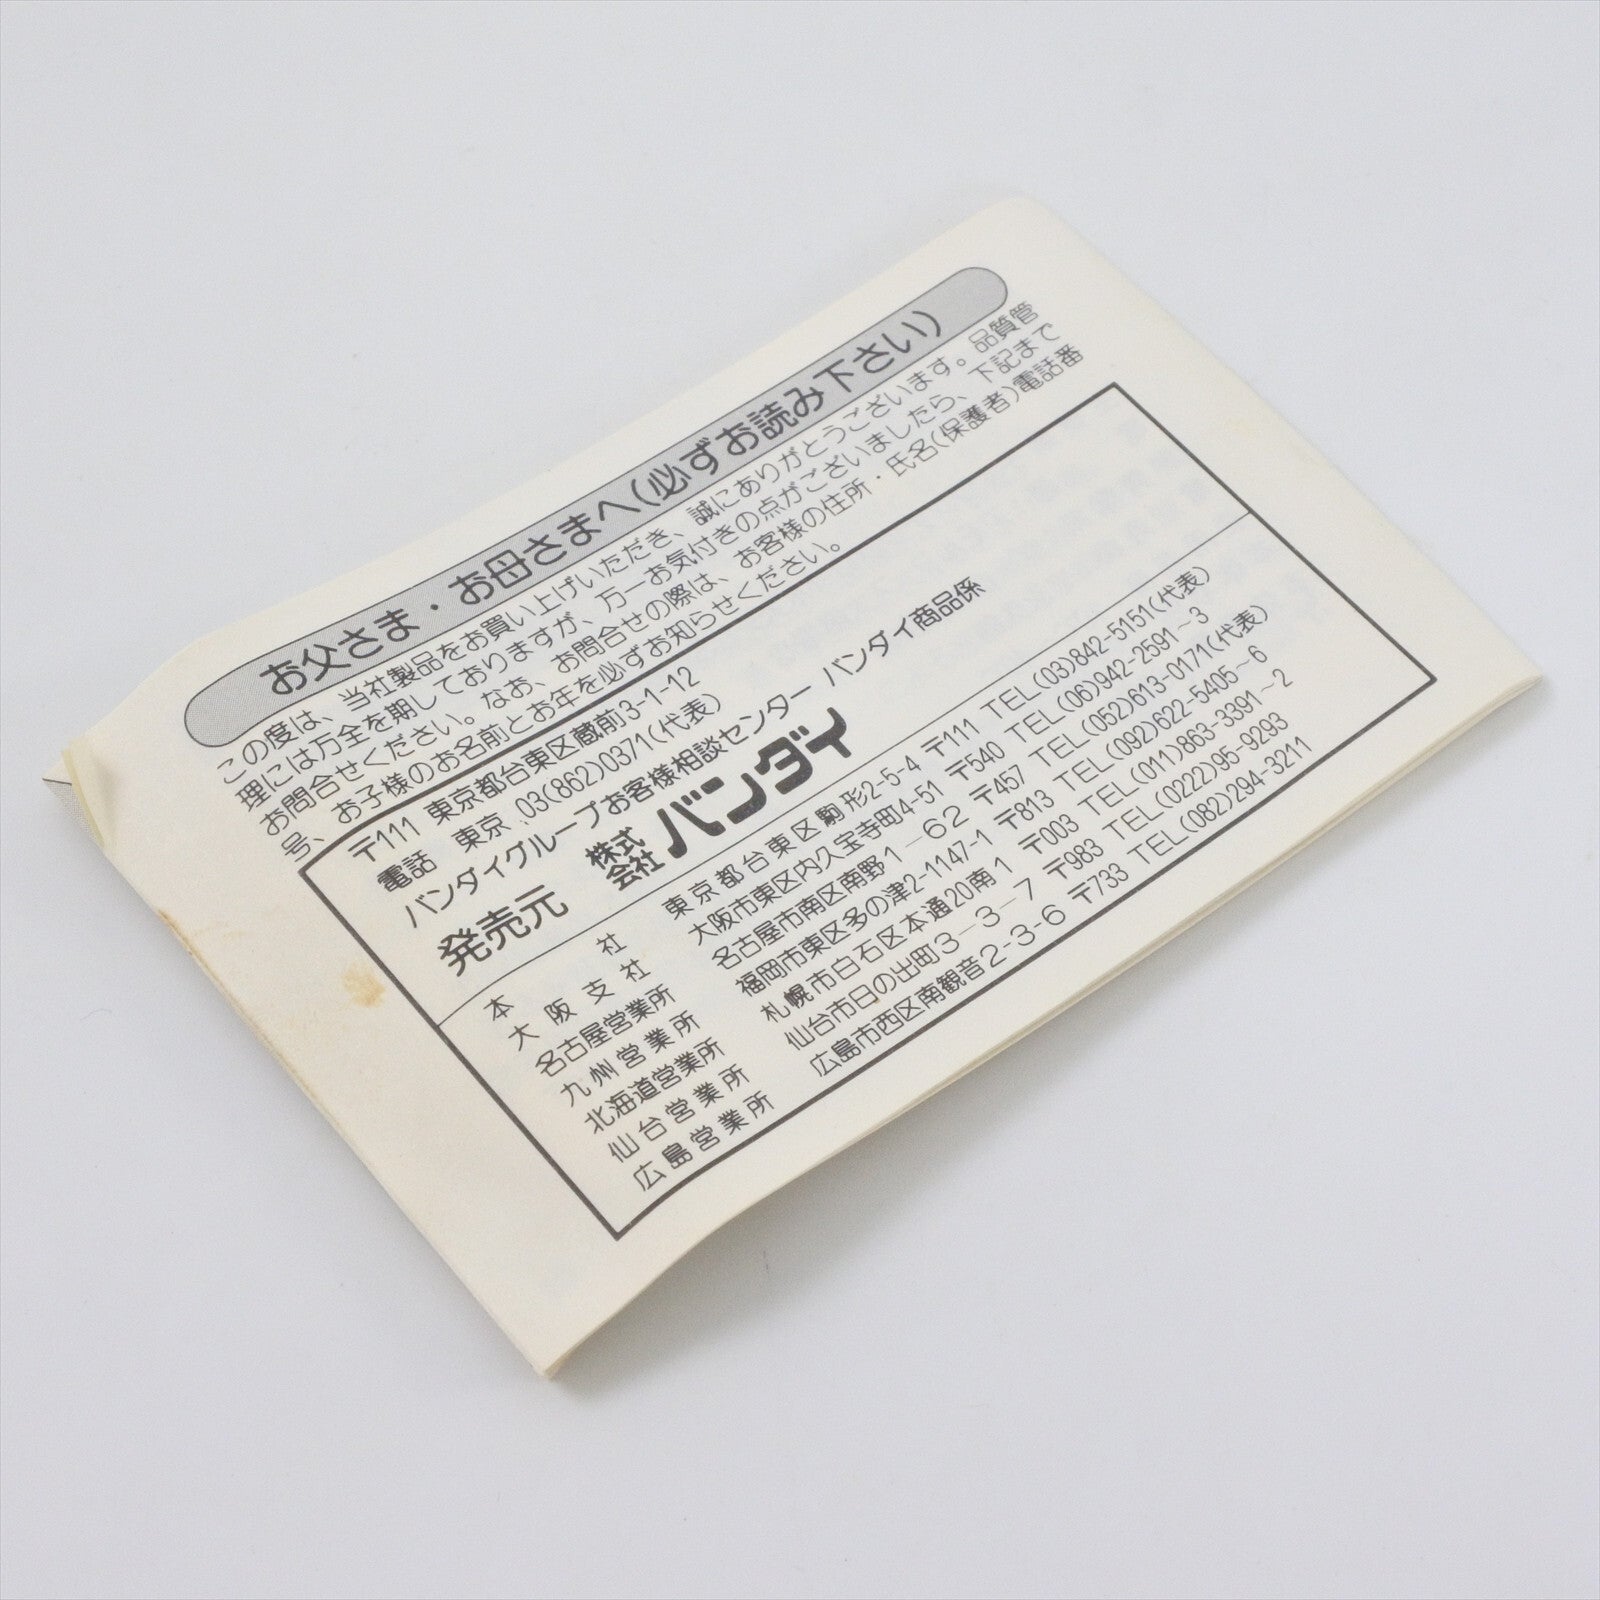 お父さま・お母さまへ(必ずお読み下さい)
この度は、当社製品をお買い上げいただき、誠にありがとうございます。品質管
理には万全を期しておりますが、万一お気付きの点がございましたら、下記まで
お問合せください。なお、お問合せの際は、お客様の住所・氏名(保護者)電話番
号、お子様のお名前とお年を必ずお知らせください。
〒111 東京都台東区蔵前3-1-12
電話 東京 03(862)0371(代表)
バンダイグループお客様相談センター バンダイ商品係
発売元 株式会社 バンダイ
本社 東京都台東区駒形2-5-4 〒111 TEL(03)842-5151(代表)
大阪支社 大阪市東区内久宝寺町4-51 〒540 TEL(06)942-2591~3
名古屋営業所 名古屋市南区南野1-62 〒457 TEL(052)613-0171(代表)
九州営業所 福岡市東区多の津2-1147-1 〒813 TEL(092)622-5405~6
北海道営業所 札幌市白石区本通20南1 〒003 TEL(011)863-3391~2
仙台営業所 仙台市日の出町3-3-7 〒983 TEL(022)95-9293
広島営業所 広島市西区南観音2-3-6 〒733 TEL(082)294-3211